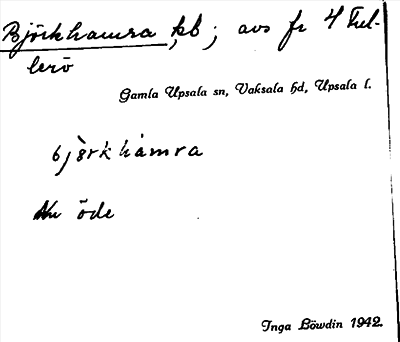 Björkhamra, bb; avs fr 4 Ful-
lerö
Gamla Upsala sn, Vaksala hd, Upsala l.
bjørkhàmra
Nu öde
Inga Löwdin 1942.